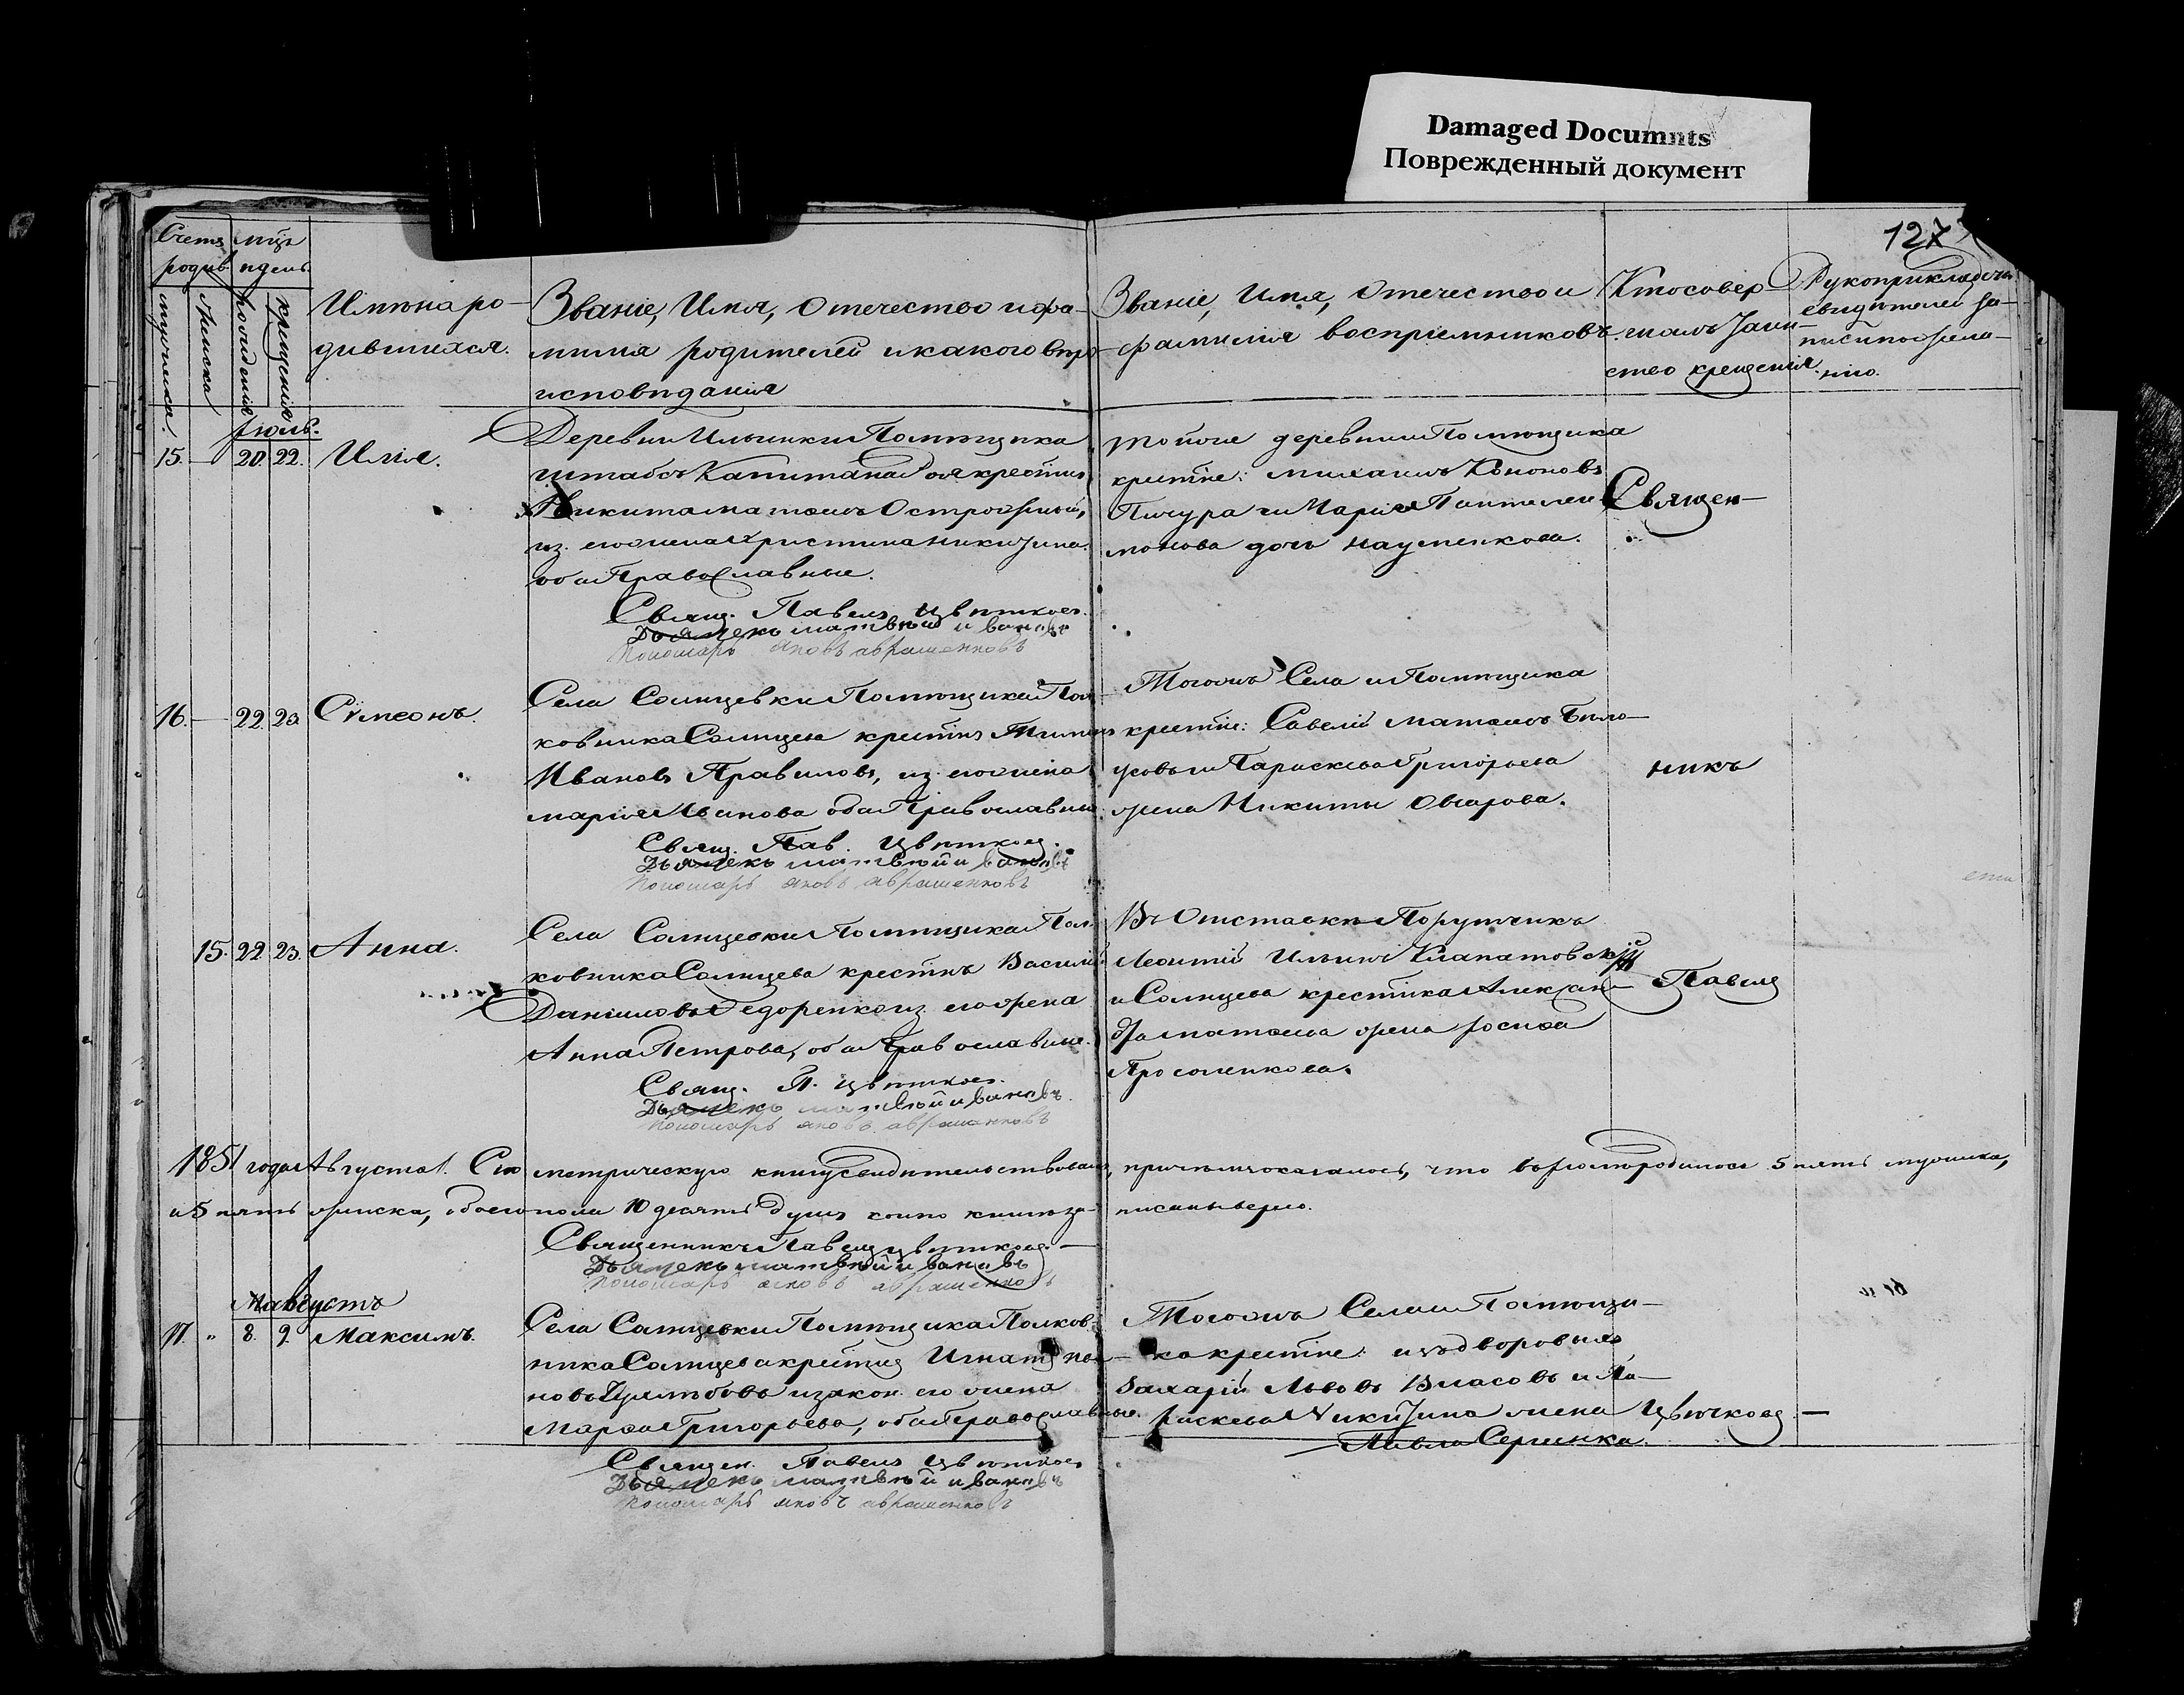 Damaged Documnts
Поврежденный документ
127
Счетъ родив
мцъ и день
мужеска.
женска
рожденія
крещенія
Имѣна ро-
дившихся.
Званіе, Имя, Отечество и фа-
милія родителей и какого вѣро-
исповѣданія
Званіе, Имя, Отечество и
фамилія воспріемниковъ.
Кто совер-
шалъ Таин-
ство крещенія
Рукоприкладства
свидѣтелей за-
писи по жела-
нію.
Іюль.
15. — 20. 22. Илія.
Деревни Ильинки Помѣщика
штабсъ Капитана
Никита Матѳеевъ Острожный,
из. его жена Христина Никитина.
оба Православные.
Свящ. Павелъ Цвѣтковъ.
Дьячекъ матвѣй ивановъ
Пономарь яковъ аврашенковъ
тойже деревни и Помѣщика
крестне: михаилъ Кононовъ
Пичура и Марія Пантелеи-
монова дочь Науменкова.
Священ-
16. — 22. 23. Сѵмеонъ.
Села Солнцевки Помѣщика Пол-
ковника Солнцева крестнъ
Ивановъ Правиловъ, из. его жена
марія Иванова оба Православные.
Свящ. Пав. Цвѣтковъ.
Дьячекъ матвѣй ивановъ
Пономарь яковъ аврашенковъ
Тогожъ Села и Помѣщика
крестне: Савелій Матѳеевъ Бѣло-
усовъ и Параскева Григорьева
жена Никиты Овчарова.
никъ
15. 22. 23. Анна.
Села Солнцевки Помѣщика Пол-
ковника Солнцева крестнъ Василій
Даніиловъ Федоренко из. его жена
Анна Петрова, оба Православные.
Свящ. П. Цвѣтковъ.
Дьячекъ матвѣй ивановъ
Пономарь яковъ аврашенковъ
Въ Отставкѣ Порутчикъ
Леонтій Ильинъ
и Солнцева крестнка Алексан-
дра матѳеева жена
Павелъ
1851 года Августа 1. Сію метрическую книгу свидѣтельствовали, причемъ оказалось, что въ родилось 5 пять мужеска,
и 5 пять женска, обоего пола 10 десять душъ коихо книгѣ за- писаны верно.
Священникъ Павелъ Цвѣтковъ. —
Дьячекъ матвѣй ивановъ
Пономарь яковъ аврашенковъ
августъ
17. " 8. 9. Максимъ.
Села Солнцевки Помѣщика Полков-
ника Солнцева крестнъ Игнатъ
новъ и закон. его жена
Марѳа Григорьева, оба Православные.
Священ. Павелъ Цвѣтковъ
Дьячекъ матвѣй ивановъ
Пономарь яковъ аврашенковъ
Тогожъ Села и Помѣщи-
ка крестне: изъ дворовыхъ
Захарій Львовъ Власовъ и Па-
раскева Никитина жена
Павла Сергинка.
Цвѣтковъ —